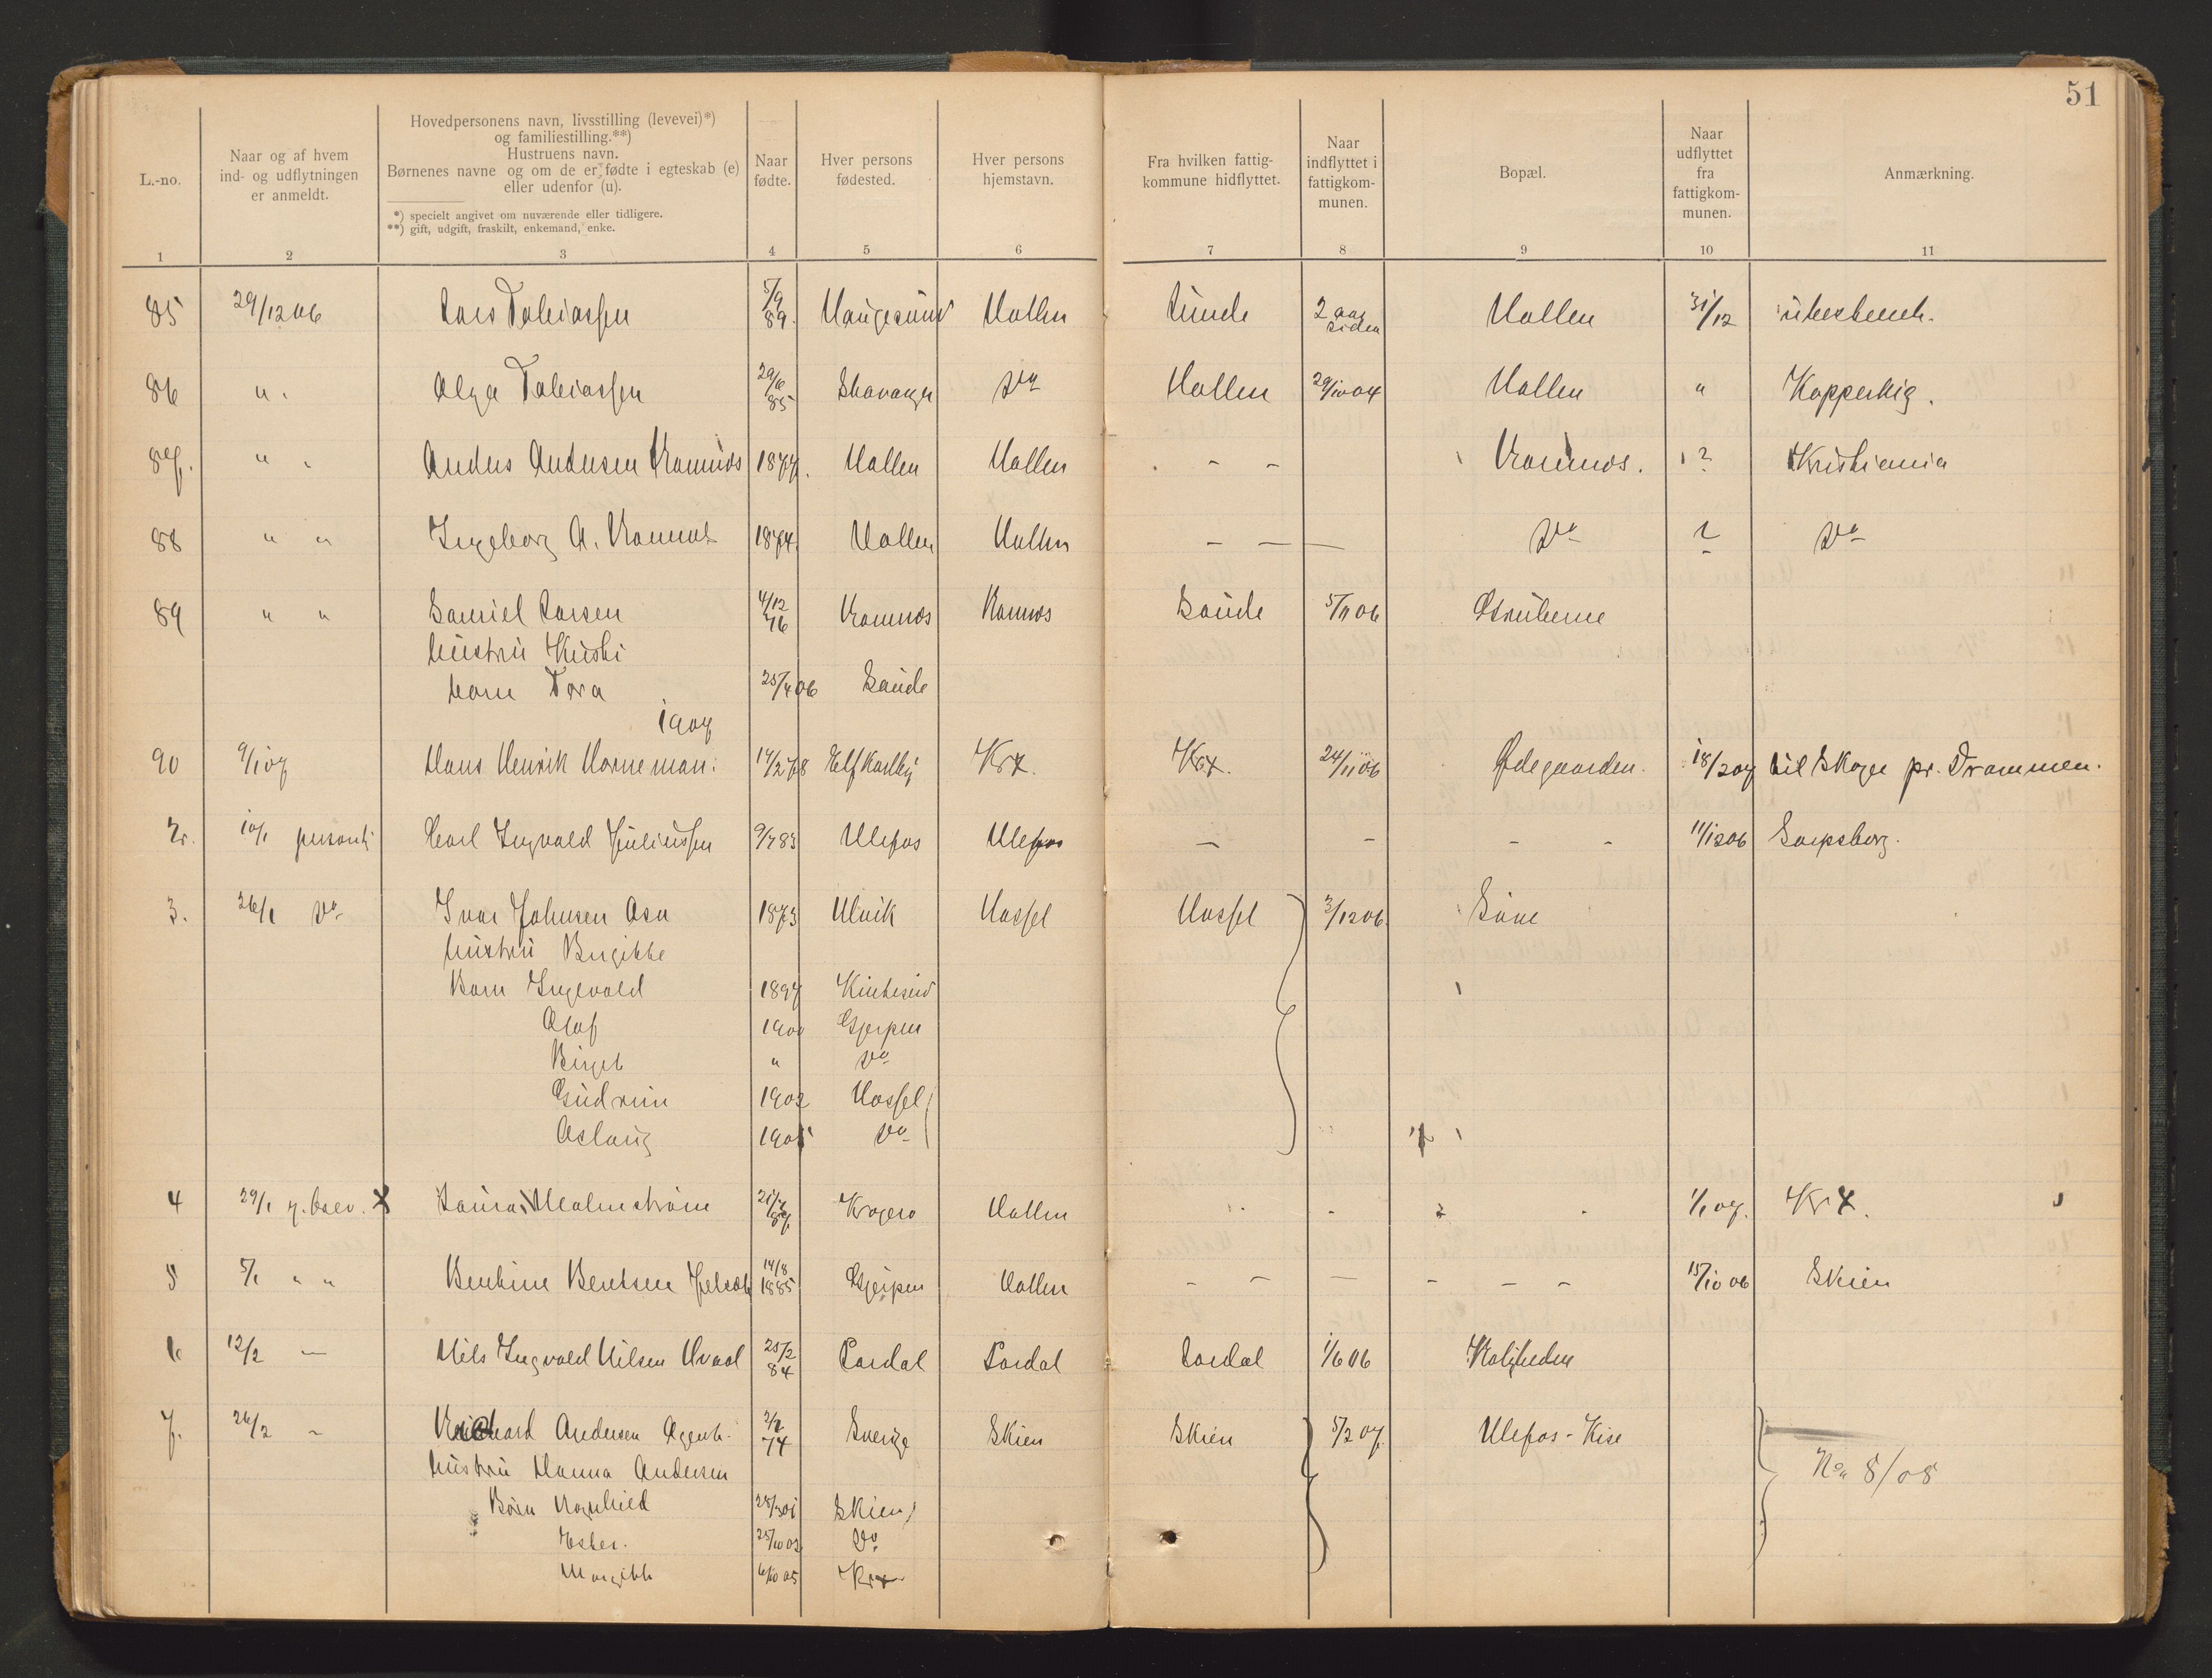 51
L.-no.
Naar og af hvem
ind- og udflytningen
er anmeldt.
Hovedpersonens navn, livsstilling (levevei)*)
og familiestilling.**)
Hustruens navn.
Børnenes navne og om de er fødte i egteskab (e)
eller udenfor (u).
*) specielt angivet om nuværende eller tidligere.
**) gift, udgift, fraskilt, enkemand, enke.
Naar
fødte.
Hver persons
fødested.
Hver persons
hjemstavn.
Fra hvilken fattig-
kommune hidflyttet.
Naar
indflyttet i
fattigkom-
munen.
Bopæl.
Naar
udflyttet
fra
fattigkom-
munen.
Anmærkning.
1 2 3 4 5 6 7 8 9 10 11
85 29/12 06 Lars Tobiassen 5/9 89. Haugesund Hollen Lunde 2 aar siden Hollen 31/12 ubestemt.
86 " . Olga Tobiassen 29/6 85 Stavanger Do Hollen 29/10 04 Hollen " Koppervig.
87. " . Anders Andersen Romnes 1877. Hollen Hollen - - Romnes. ? Kristiania
88 " " Ingeborg A. Romnes 1874. Hollen Hollen - - - Do ? Do
89 " " Samiel Larsen 4/12 76 Romnes Romnes Saude 5/11 06 Struberne
hustru Kirsti
barn Tora 25/4 06 Saude
1907
90 9/1 07 Hans Henrik Horneman. 14/2 78 Elfkarlby Kr.X. Kr.X. 24/11 06 Ødegaarden. 18/2 07 til Skoger pr. Drammen.
2. 10/1 personl Carl Ingvald Juliussen 9/7 83 Ulefos Ulefos - - - - 11/12 06 Sarpsborg.
3. 26/1 Do Ivar Johnsen Asn 1873 Ulvik Hassel Hassel 3/12 06. Søve
hustru Birgitte
Barn Ingevald 1897
Olaf 1900 Gjerpen
Birgit " Do
Gudrun 1902 Hassel
Aslaug 1905 Do
4 29/1 g. brev. X Laura Malmstrøm 21/7 87. Kragerø Hollen 1/1 07. Kr.X.
5 5/1 " " Bentine Bentsen 14/8 1885 Gjerpen Hollen - - - - - - 15/10 06 Skien
6 12/2 - Nils Ingvald Nilsen Hvaal 25/2 84 Lardal Lardal Lardal 1/6 06
7. 26/2 - Andersen Agent. 2/2 74 Sverige Skien Skien 5/2 07. Ulefos - Kise
hustru Hanna Andersen No 8/08
Børn Ragnhild 28/3 01 Skien
Ester. 25/10 02 Do
Margith 6/10 05 Kr.X